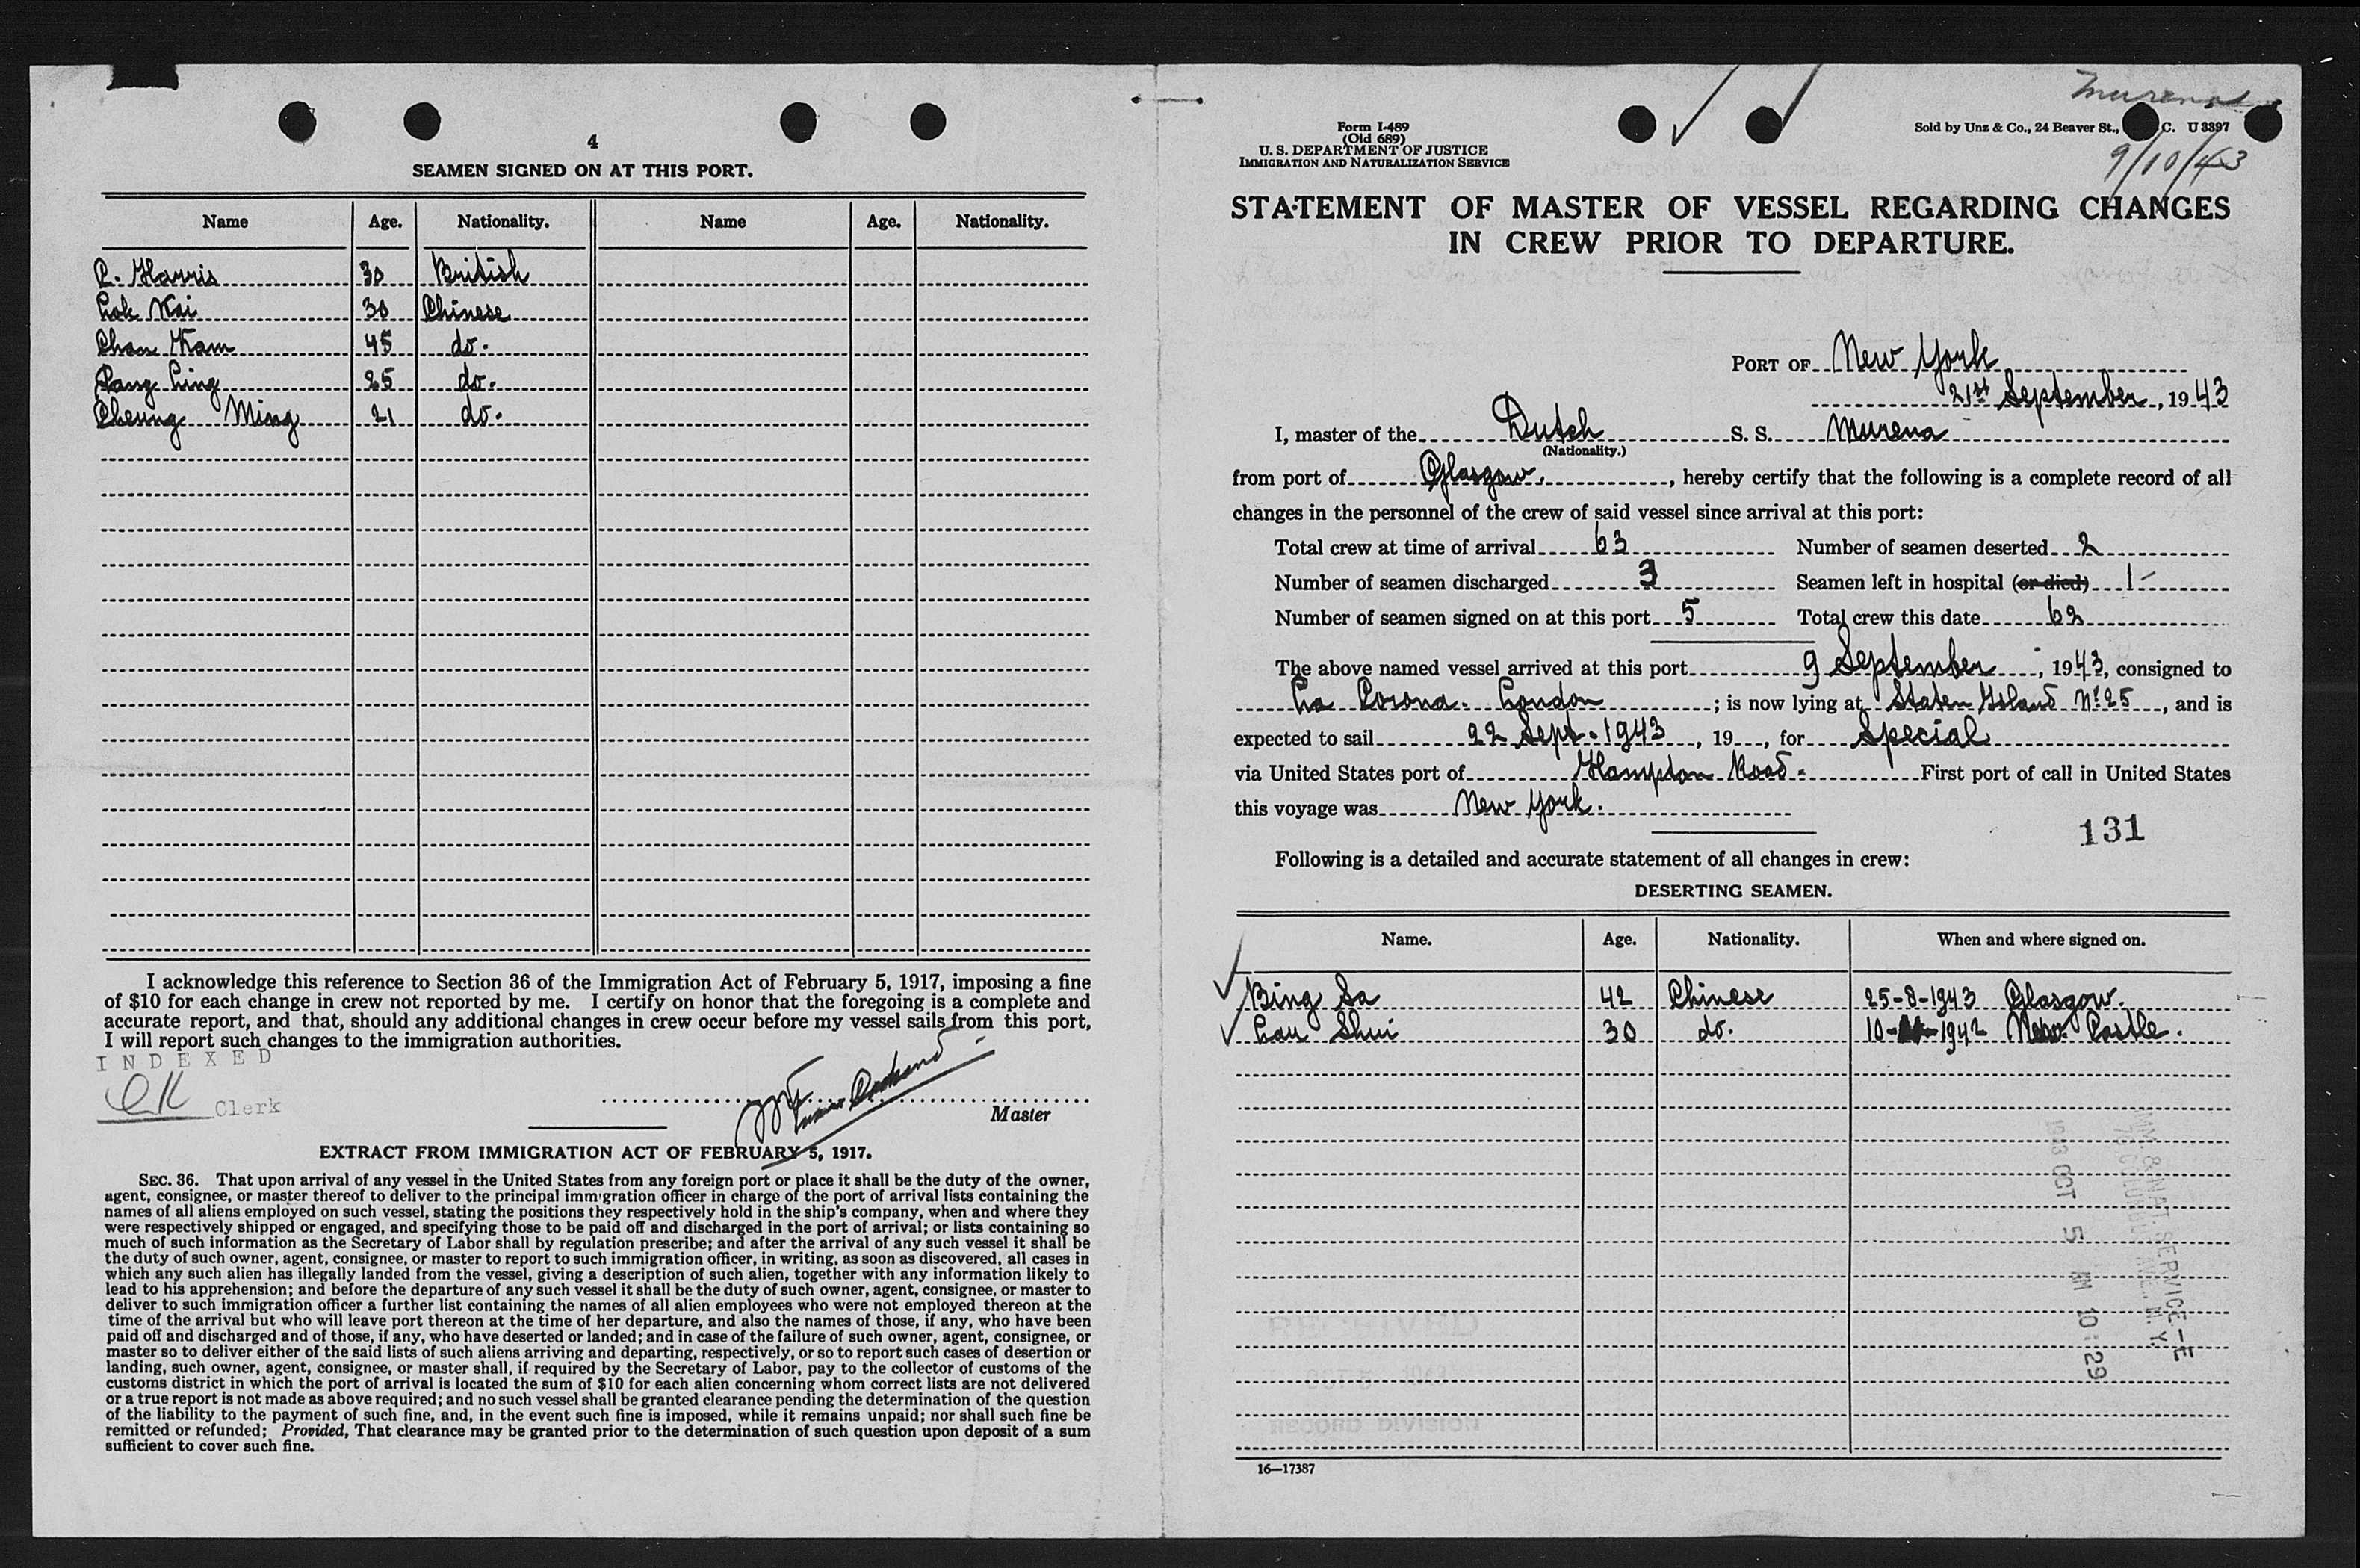 4
SEAMEN SIGNED ON AT THIS PORT.
Name Age. Nationality. Name Age. Nationality.
C. Harris 30 British
Lok Kai 30 Chinese
Chan Kam 45 do.
Pang Ling 25 do.
Cheung Ming 21 do.
I acknowledge this reference to Section 36 of the Immigration Act of February 5, 1917, imposing a fine
of $10 for each change in crew not reported by me. I certify on honor that the foregoing is a complete and
accurate report, and that, should any additional changes in crew occur before my vessel sails from this port,
I will report such changes to the immigration authorities.
INDEXED
Clerk
Master
EXTRACT FROM IMMIGRATION ACT OF FEBRUARY 5, 1917.
SEC. 36. That upon arrival of any vessel in the United States from any foreign port or place it shall be the duty of the owner,
agent, consignee, or master thereof to deliver to the principal immigration officer in charge of the port of arrival lists containing the
names of all aliens employed on such vessel, stating the positions they respectively hold in the ship's company, when and where they
were respectively shipped or engaged, and specifying those to be paid off and discharged in the port of arrival; or lists containing so
much of such information as the Secretary of Labor shall by regulation prescribe; and after the arrival of any such vessel it shall be
the duty of such owner, agent, consignee, or master to report to such immigration officer, in writing, as soon as discovered, all cases in
which any such alien has illegally landed from the vessel, giving a description of such alien, together with any information likely to
lead to his apprehension; and before the departure of any such vessel it shall be the duty of such owner, agent, consignee, or master to
deliver to such immigration officer a further list containing the names of all alien employees who were not employed thereon at the
time of the arrival but who will leave port thereon at the time of her departure, and also the names of those, if any, who have been
paid off and discharged and of those, if any, who have deserted or landed; and in case of the failure of such owner, agent, consignee, or
master so to deliver either of the said lists of such aliens arriving and departing, respectively, or so to report such cases of desertion or
landing, such owner, agent, consignee, or master shall, if required by the Secretary of Labor, pay to the collector of customs of the
customs district in which the port of arrival is located the sum of $10 for each alien concerning whom correct lists are not delivered
or a true report is not made as above required; and no such vessel shall be granted clearance pending the determination of the question
of the liability to the payment of such fine, and, in the event such fine is imposed, while it remains unpaid; nor shall such fine be
remitted or refunded; Provided, That clearance may be granted prior to the determination of such question upon deposit of a sum
sufficient to cover such fine.
Murena
Form I-489
(Old 689)
U. S. DEPARTMENT OF JUSTICE
IMMIGRATION AND NATURALIZATION SERVICE
Sold by Unz & Co., 24 Beaver St., C. U 3397
9/10/43
STATEMENT OF MASTER OF VESSEL REGARDING CHANGES
IN CREW PRIOR TO DEPARTURE.
PORT OF New York
21st September, 1943
I, master of the Dutch S. S. Murena
(Nationality.)
from port of Glasgow, hereby certify that the following is a complete record of all
changes in the personnel of the crew of said vessel since arrival at this port:
Total crew at time of arrival 63 Number of seamen deserted 2
Number of seamen discharged 3 Seamen left in hospital (or died) 1-
Number of seamen signed on at this port 5 Total crew this date 62
The above named vessel arrived at this port 9 September, 1943, consigned to
La Corona. London; is now lying at Staten Island No. 25, and is
expected to sail 22 Sept. 1943, 19, for Special
via United States port of Hampton Road. First port of call in United States
this voyage was New York.
131
Following is a detailed and accurate statement of all changes in crew:
DESERTING SEAMEN.
Name. Age. Nationality. When and where signed on.
Bing Sa 42 Chinese 25-8-1943 Glasgow.
Lau Shui 30 do. 10- -1942 New Castle.
IMM. & NAT. SERVICE-E
70 COLUMBUS AVE., N. Y.
1943 OCT 5 AM 10:29
16—17387